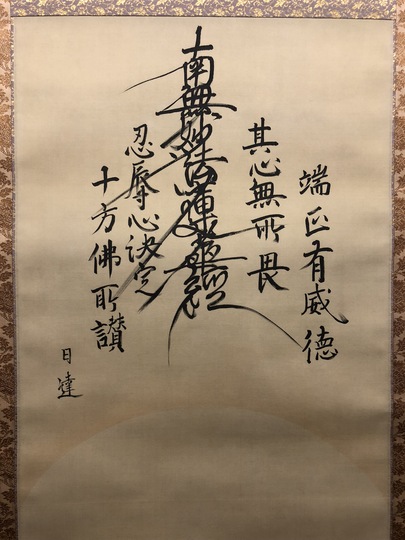 端正有威徳
其心無所畏
南無妙法蓮華經
忍辱心決定
十方佛所讃
日達